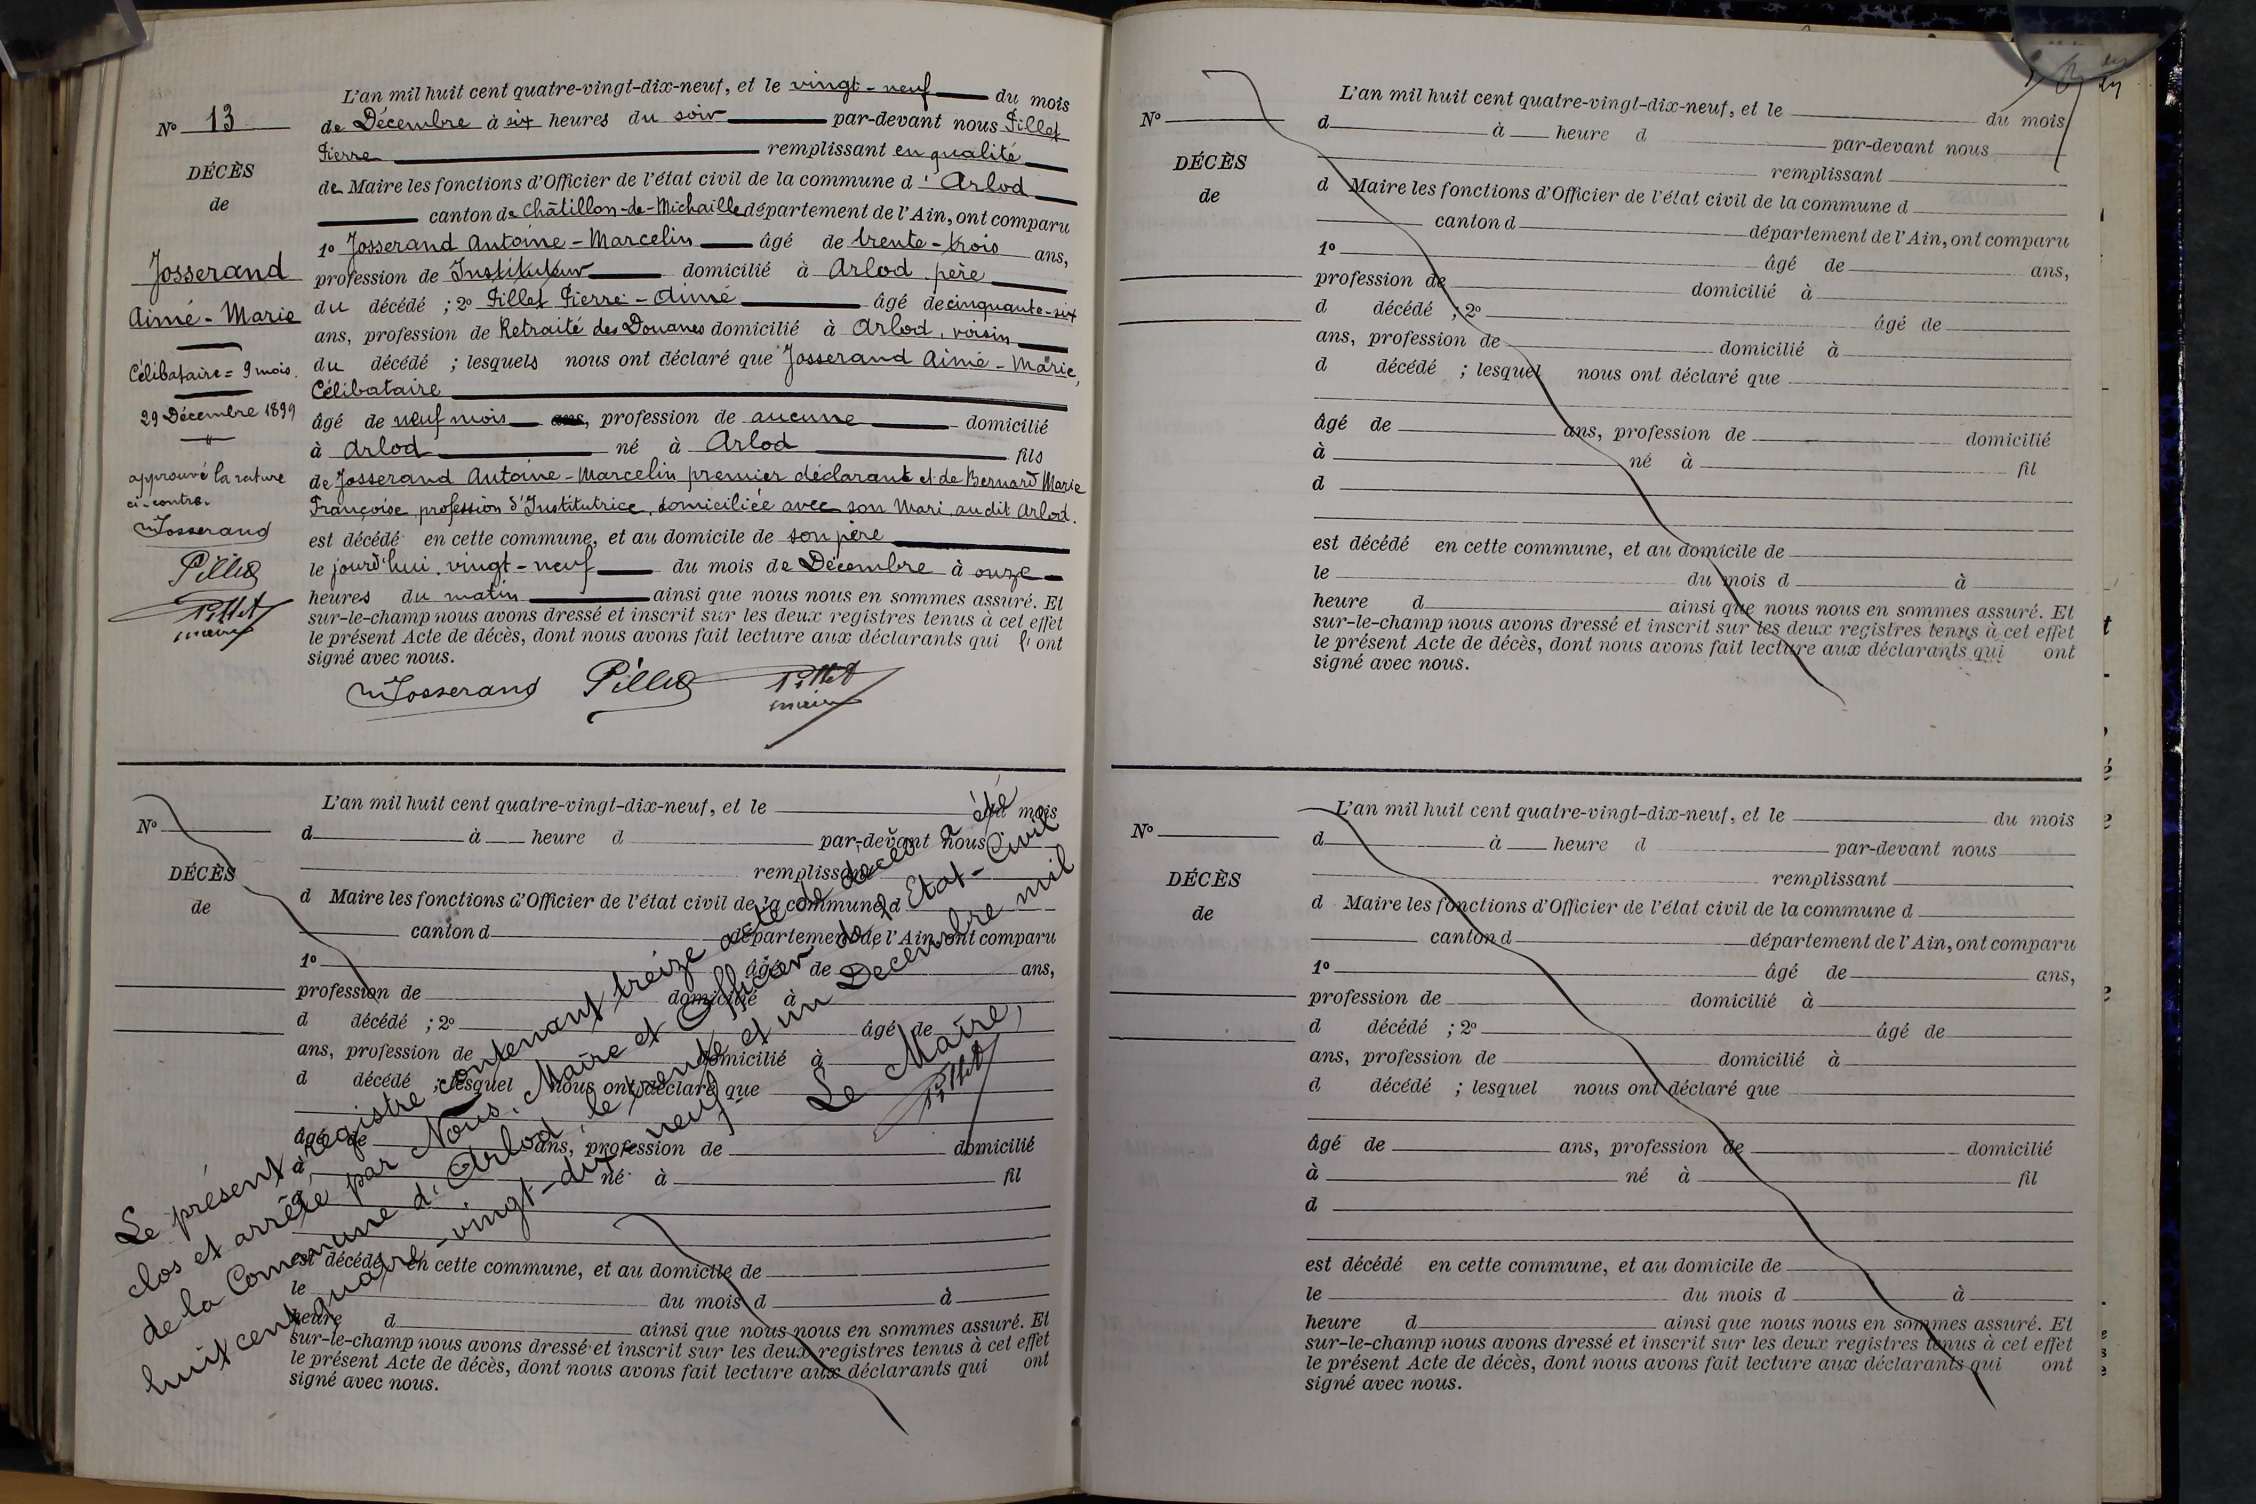 N° 13
DÉCÈS
de
Josserand
Aimé - Marie
Célibataire = 9 mois.
29 Décembre 1899
approuvé la rature
ci-contre.
Josserand
Pillet
Pillet
maire
L'an mil huit cent quatre-vingt-dix-neuf, et le vingt-neuf du mois
de Décembre à six heures du soir par-devant nous Pillet
Pierre remplissant en qualité
de Maire les fonctions d'Officier de l'état civil de la commune d'Arlod
canton de Châtillon-de-Michaille département de l'Ain, ont comparu
1° Josserand Antoine-Marcelin âgé de trente-trois ans,
profession de Instituteur domicilié à Arlod père
du décédé ; 2° Pillet Pierre-Aimé âgé de cinquante-six
ans, profession de Retraité des Douanes domicilié à Arlod, voisin
du décédé ; lesquels nous ont déclaré que Josserand Aimé-Marie,
Célibataire
âgé de neuf mois ans, profession de aucune domicilié
à Arlod né à Arlod fils
de Josserand Antoine-Marcelin premier déclarant et de Bernard Marie
Françoise profession d'Institutrice, domiciliée avec son Mari, au dit Arlod.
est décédé en cette commune, et au domicile de son père
le jourd'hui vingt-neuf du mois de Décembre à onze
heures du matin ainsi que nous nous en sommes assuré. Et
sur-le-champ nous avons dressé et inscrit sur les deux registres tenus à cet effet
le présent Acte de décès, dont nous avons fait lecture aux déclarants qui l'ont
signé avec nous.
Josserand Pillet Pillet
maire
N°
DÉCÈS
de
L'an mil huit cent quatre-vingt-dix-neuf, et le du mois
d à heure d par-devant nous
remplissant
d Maire les fonctions d'Officier de l'état civil de la commune d
canton d département de l'Ain, ont comparu
1° âgé de ans,
profession de domicilié à
d décédé ; 2° âgé de
ans, profession de domicilié à
d décédé ; lesquel nous ont déclaré que
âgé de ans, profession de domicilié
à né à fil
d
est décédé en cette commune, et au domicile de
le du mois d à
heure d ainsi que nous nous en sommes assuré. Et
sur-le-champ nous avons dressé et inscrit sur les deux registres tenus à cet effet
le présent Acte de décès, dont nous avons fait lecture aux déclarants qui ont
signé avec nous.
Le présent registre contenant treize acte de décès a été
clos et arrêté par Nous, Maire et Officier de l'Etat-Civil
de la Commune d'Arlod, le trente et un Decembre mil
huit cent quatre-vingt-dix-neuf.
Le Maire,
Pillet
N°
DÉCÈS
de
L'an mil huit cent quatre-vingt-dix-neuf, et le du mois
d à heure d par-devant nous
remplissant
d Maire les fonctions d'Officier de l'état civil de la commune d
canton d département de l'Ain, ont comparu
1° âgé de ans,
profession de domicilié à
d décédé ; 2° âgé de
ans, profession de domicilié à
d décédé ; lesquel nous ont déclaré que
âgé de ans, profession de domicilié
à né à fil
d
est décédé en cette commune, et au domicile de
le du mois d à
heure d ainsi que nous nous en sommes assuré. Et
sur-le-champ nous avons dressé et inscrit sur les deux registres tenus à cet effet
le présent Acte de décès, dont nous avons fait lecture aux déclarants qui ont
signé avec nous.
N°
DÉCÈS
de
L'an mil huit cent quatre-vingt-dix-neuf, et le du mois
d à heure d par-devant nous
remplissant
d Maire les fonctions d'Officier de l'état civil de la commune d
canton d département de l'Ain, ont comparu
1° âgé de ans,
profession de domicilié à
d décédé ; 2° âgé de
ans, profession de domicilié à
d décédé ; lesquel nous ont déclaré que
âgé de ans, profession de domicilié
à né à fil
d
est décédé en cette commune, et au domicile de
le du mois d à
heure d ainsi que nous nous en sommes assuré. Et
sur-le-champ nous avons dressé et inscrit sur les deux registres tenus à cet effet
le présent Acte de décès, dont nous avons fait lecture aux déclarants qui ont
signé avec nous.